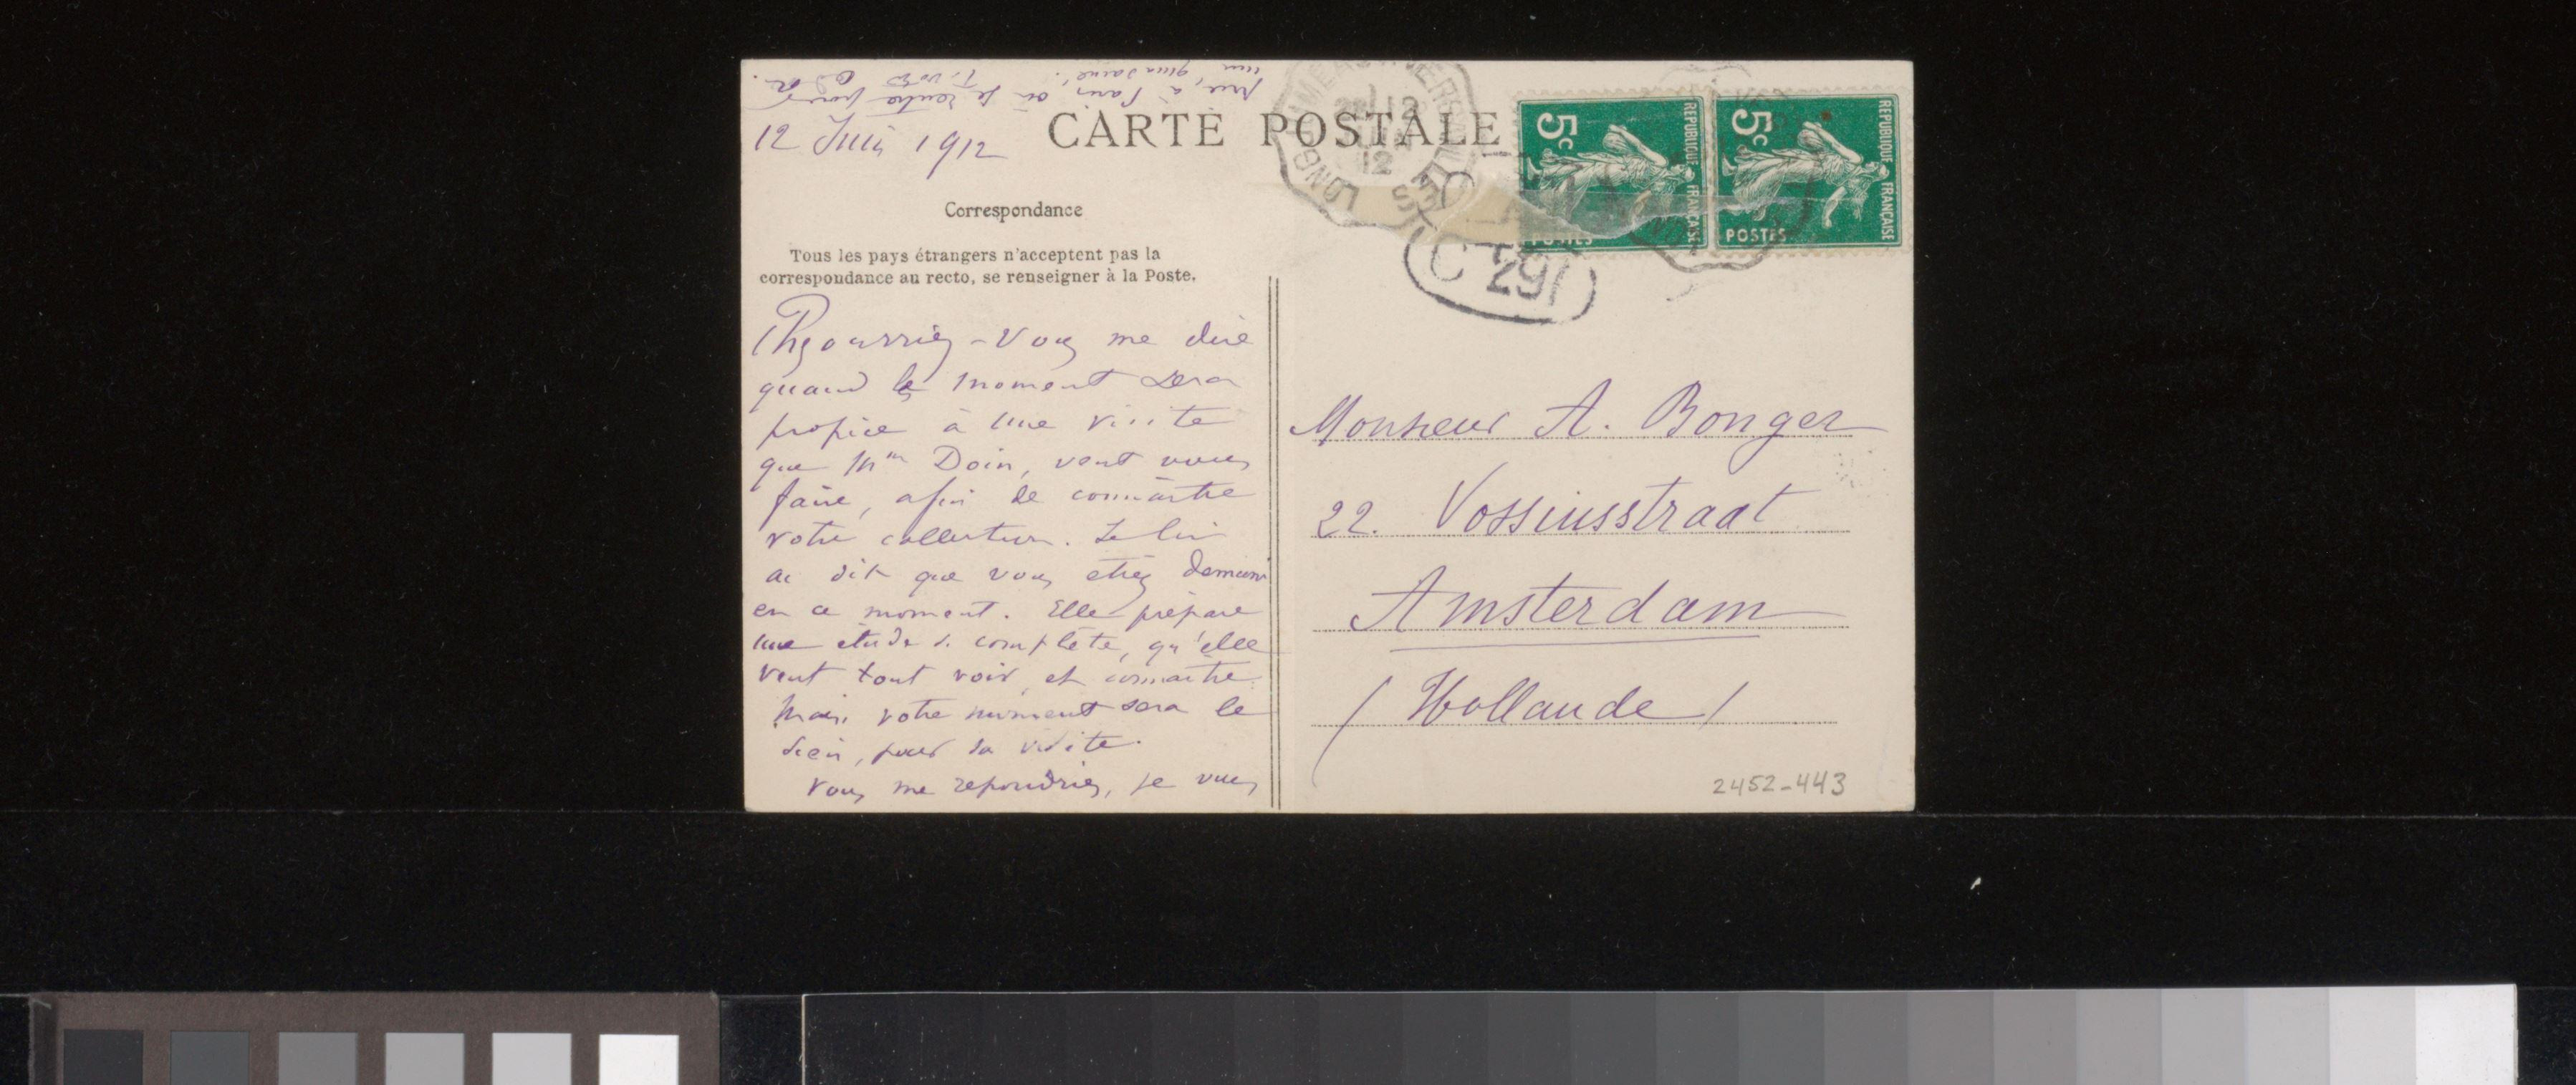 12 Juin 1912
CARTE POSTALE
Correspondance
Tous les pays étrangers n'acceptent pas la
correspondance au recto, se renseigner à la Poste.
pourriez-vous me dire
quand le moment sera
propice à une visite
que Mme Doin, veut vous
faire, afin de connaître
votre collection. Je lui
ai dit que vous étiez demuni
en ce moment. Elle prépare
une étude si complète, qu'elle
veut tout voir, et connaitre.
Mais votre moment sera le
sien, pour sa visite.
Vous me repondriez, je vous
prie, à Paris, où je rentre pour
une quinzaine.
Monsieur A. Bonger
22. Vossiusstraat
Amsterdam
(Hollande)
2452-443
5c
REPUBLIQUE FRANÇAISE
POSTES
5c
REPUBLIQUE FRANÇAISE
POSTES
12
LONG